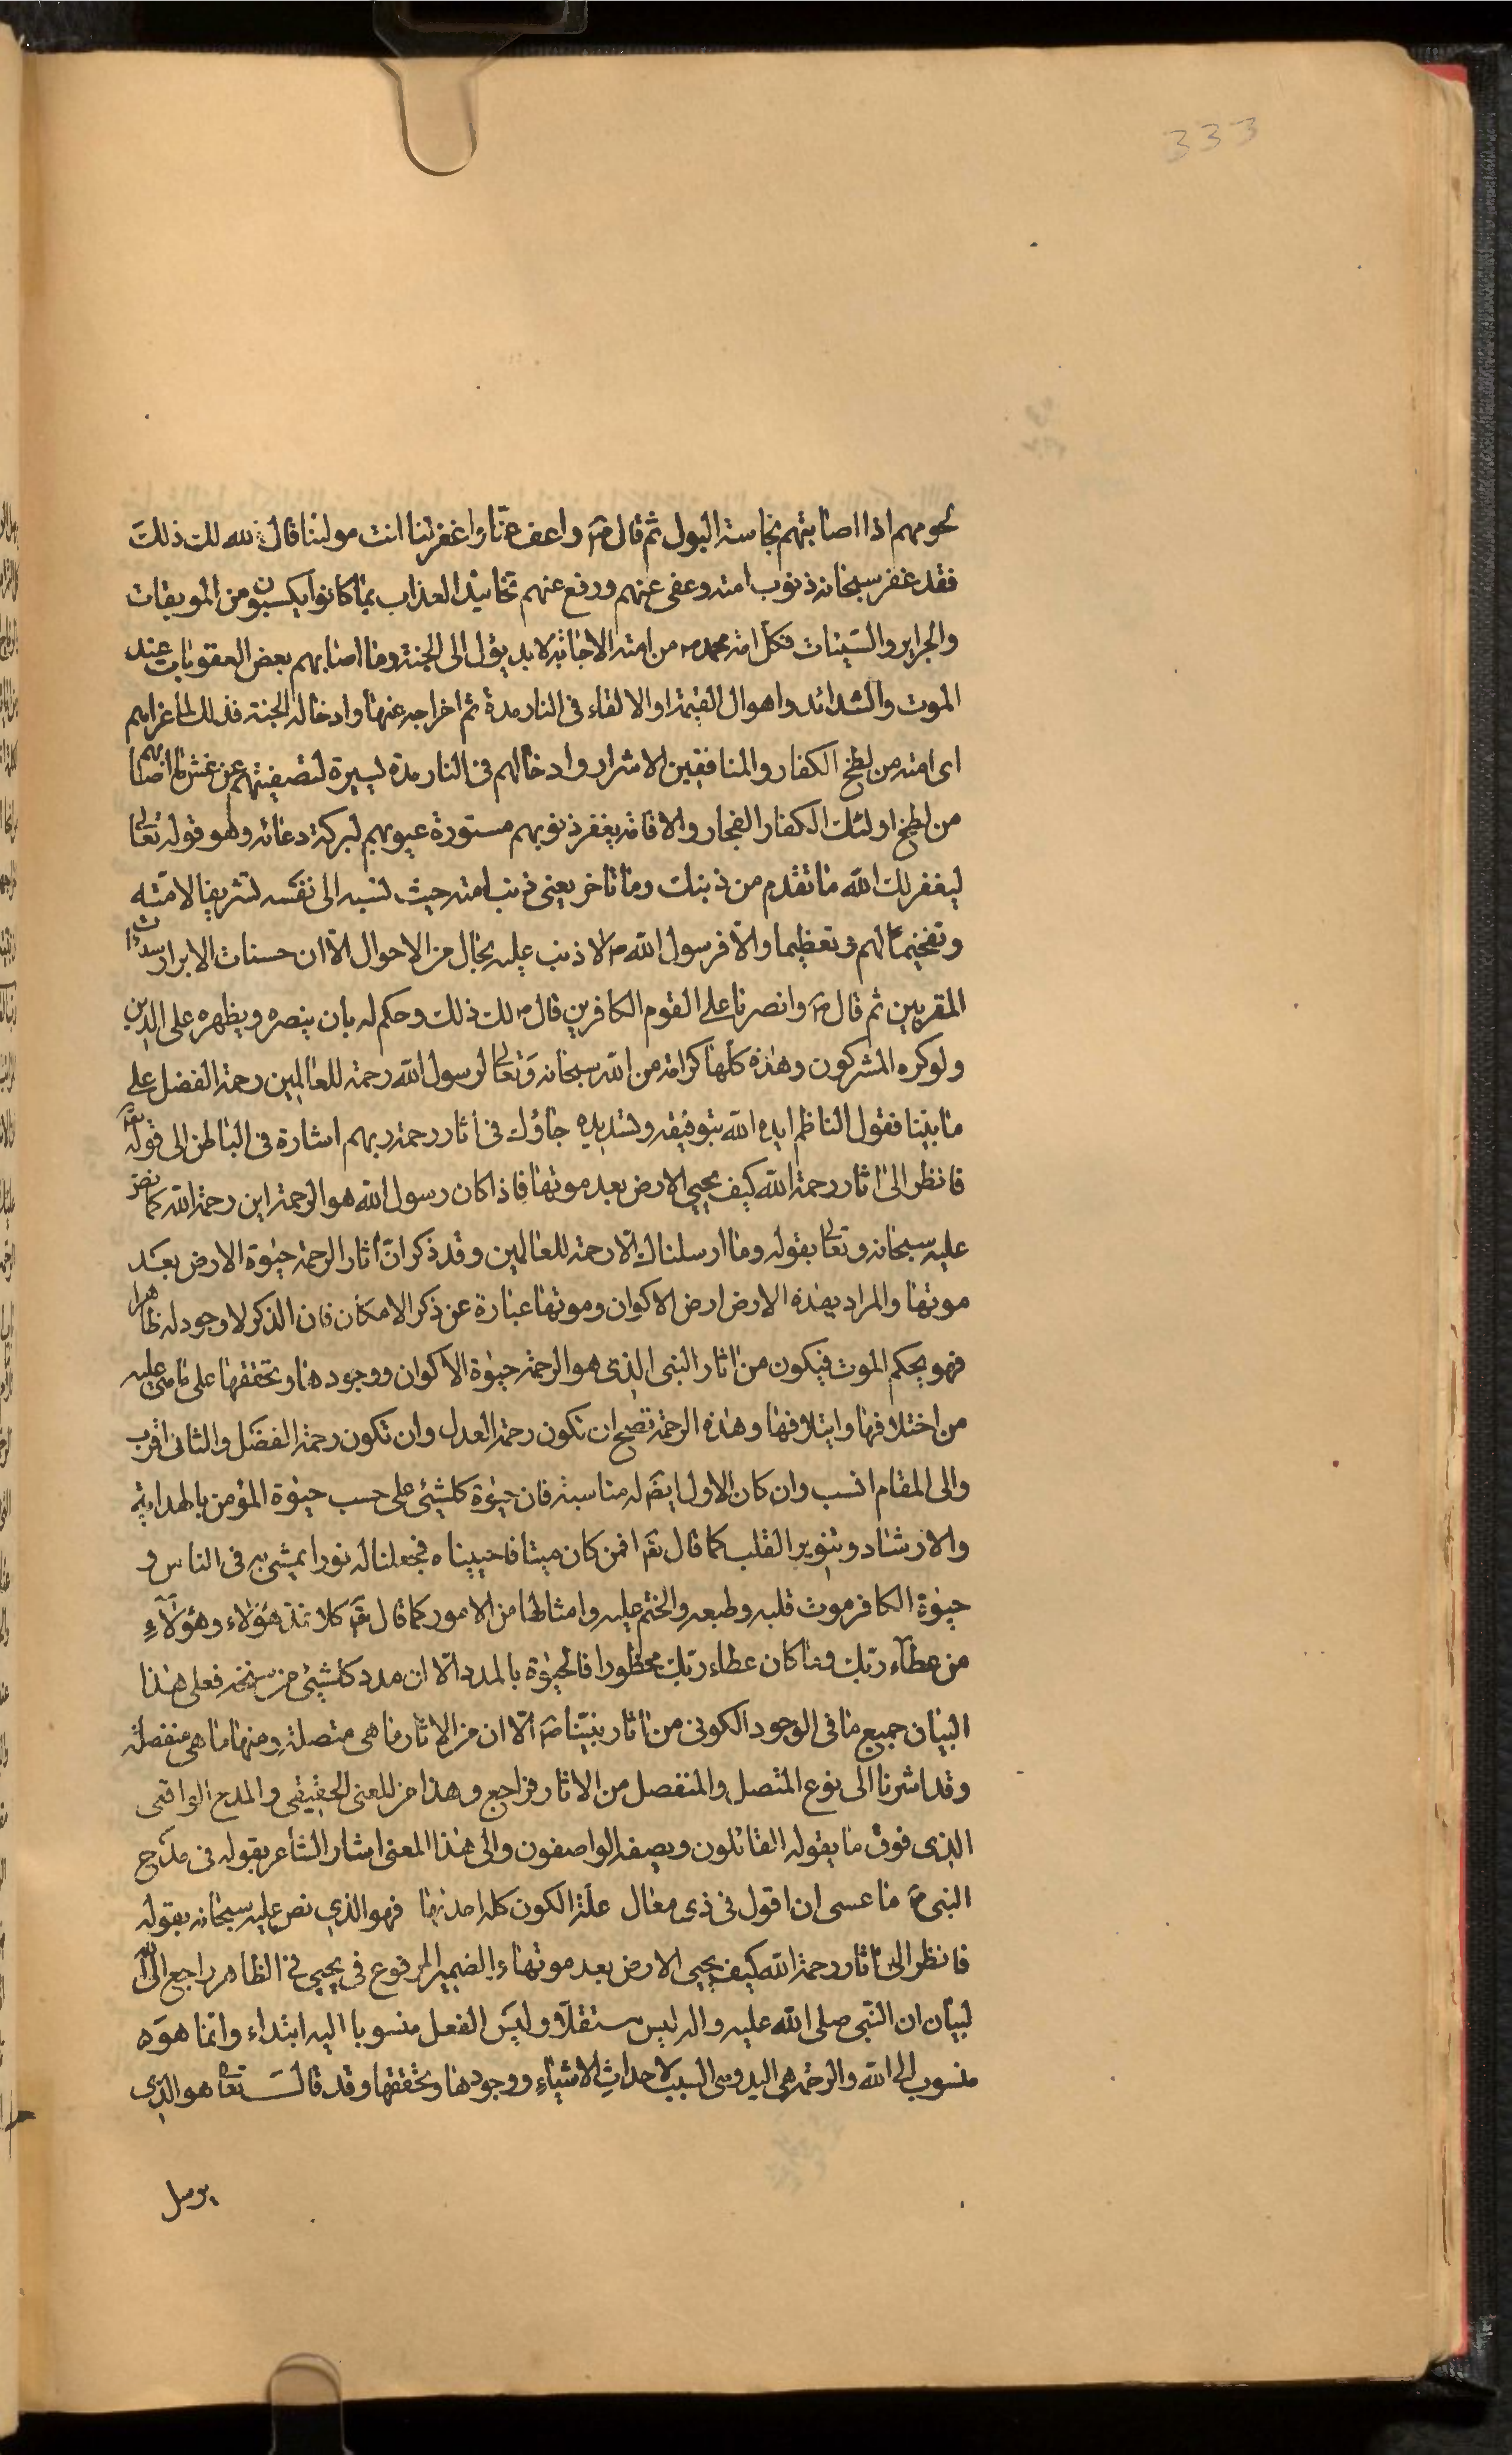 333
لحومهم اذا اصابتهم نجاسة البول ثم قال ص واعف عنا واغفر لنا انت مولينا قال الله لك ذلك
فقد غفر سبحانه ذنوب امته وعفى عنهم ورفع عنهم تخاليد العذاب بما كانوا يكسبون من الموبقات
والجراير والسيئات فكل امة محمد ص من امته الاجابة لا بد يؤل الى الجنة وما اصابهم بعض العقوبات عند
الموت والشدائد واهوال القيمة او الالقاء فى النار مدة ثم اخراجه عنها وادخاله الجنة فذلك لما عراهم
اى امته من لطخ الكفار والمنافقين الاشرار وادخالهم فى النار مدة يسيرة لتصفيتهم عن غش ما اصابهم
من لطخ اولئك الكفار الفجار والا فامته يغفر ذنوبهم مستورة عيوبهم لبركة دعائه وهو قوله تعالى
ليغفر لك الله ما تقدم من ذنبك وما تاخر يعنى ذنب امته حيث نسبه الى نفسه تشريفا لامته
وتفخيما لهم وتعظيما والا فرسول الله ص لا ذنب عليه بحال من الاحوال الا ان حسنات الابرار سيئات
المقربين ثم قال ص وانصرنا على القوم الكافرين قال لك ذلك وحكم له بان ينصره ويظهره على الدين
ولو كره المشركون وهذه كلها كرامة من الله سبحانه وتعالى لرسول الله رحمة للعالمين رحمة الفضل على
ما بينا فقول الناظم ايده الله بتوفيقه وتسديده جاؤك فى اثار رحمة ربهم اشارة فى الباطن الى قوله تع
فانظر الى اثار رحمة الله كيف يحيى الارض بعد موتها فاذا كان رسول الله هو الرحمة اين رحمة الله كما نص
عليه سبحانه وتعالى بقوله وما ارسلناك الا رحمة للعالمين وقد ذكر ان اثار الرحمة حيوة الارض بعد
موتها والمراد بهذه الارض ارض الاكوان وموتها عبارة عن ذكر الامكان فان الذكر لا وجود له ظاهرا
فهو بحكم الموت فيكون من اثار النبى الذى هو الرحمة حيوة الاكوان ووجودها وتحققها على ما هى عليه
من اختلافها وايتلافها وهذه الرحمة تصح ان تكون رحمة العدل وان تكون رحمة الفضل والثانى اقرب
والى المقام انسب وان كان الاول ايضا له مناسبة فان حيوة كلشيئ على حسب حيوة المؤمن بالهداية
والارشاد وتنوير القلب كما قال تع افمن كان ميتا فاحييناه فجعلنا له نورا يمشى به فى الناس و
حيوة الكافر موت قلبه وطبعه والختم عليه وامثالها من الامور كما قال تع كلا نمد هؤلاء وهؤلآء
من عطآء ربك وما كان عطاء ربك محظورا فالحيوة بالمدد الا ان مدد كلشيئ من سنخه فعلى هذا
البيان جميع ما فى الوجود الكونى من اثار نبينا ص الا ان من الاثار ما هى متصلة ومنها ما هى منفصلة
وقد اشرنا الى نوع المتصل والمنفصل من الاثار فراجع وهذا من المعنى الحقيقى والمدح الواقعى
الذى فوق ما يقوله القائلون ويصفه الواصفون والى هذا المعنى اشار الشاعر بقوله فى مدح
النبى ص ما عسى ان اقول فى ذى معال علة الكون كله احديها فهو الذي نص عليه سبحانه بقوله
فانظر الى اثار رحمة الله كيف يحيى الارض بعد موتها والضمير المرفوع فى يحيى فى الظاهر راجع الى الله
لبيان ان النبى صلى الله عليه واله ليس مستقلا وليس الفعل منسوبا اليه ابتداء وانما هو
منسوب الى الله والرحمة هى اليد وهى السبب لاحداث الاشياء ووجودها وتحققها وقد قال تعالى هو الذى
يرسل